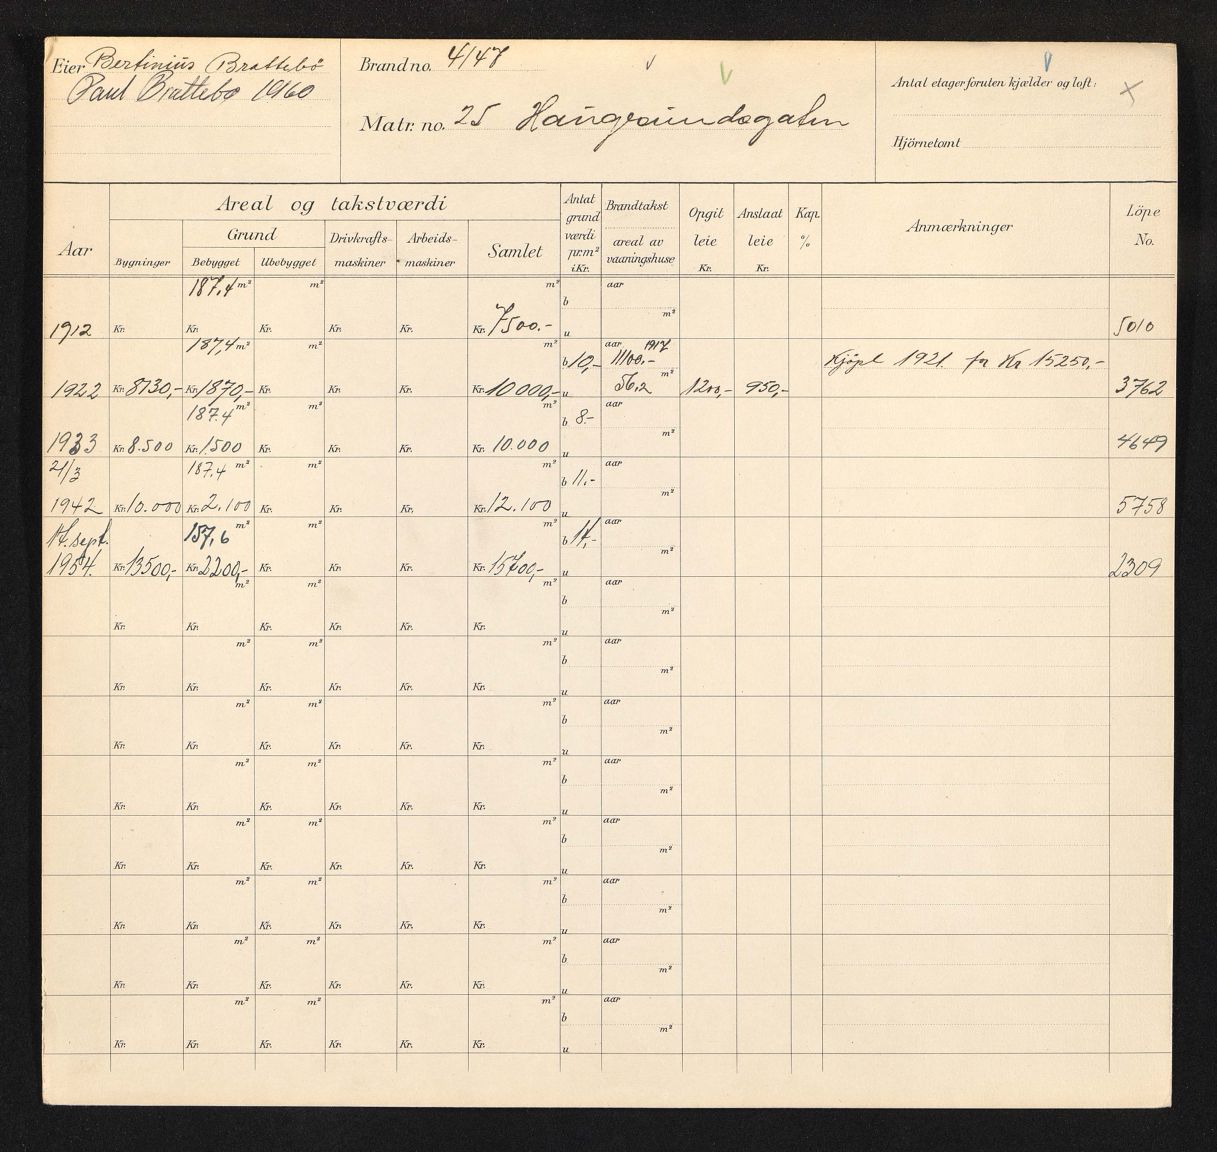 Eier Bertinius Brattebö
Paul Brattebo 1960
Brand no. 4147
Matr. no. 25 Haugesundsgaten
Antal etager foruten kjælder og loft: x
Hjörnetomt
Aar
Areal og takstværdi
Grund
Bygninger
Bebygget
Ubebygget
Drivkrafts-maskiner
Arbeids-maskiner
Samlet
Antat grund værdi pr. m² i Kr.
Brandtakst
areal av vaaningshuse
Opgit leie Kr.
Anslaat leie Kr.
Kap. %
Anmærkninger
Löpe No.
187,4 m² m² m² b aar m²
1912 Kr. Kr. Kr. Kr. Kr. Kr. 7500.- u 5010
187,4 m² m² m² b 10,- aar 1917 11100.- m² Kjöpt 1921 for Kr 15250,-
1922 Kr. 8130,- Kr. 1870,- Kr. Kr. Kr. Kr. 10000,- u 56,2 1200,- 950,- 3762
187.4 m² m² m² b 8.- aar m²
1933 Kr. 8.500 Kr. 1500 Kr. Kr. Kr. Kr. 10.000 u 4649
21/3 187,4 m² m² m² b 11.- aar m²
1942 Kr. 10.000 Kr. 2.100 Kr. Kr. Kr. Kr. 12.100 u 5758
14. sept. 157,6 m² m² m² b 14,- aar m²
1954. Kr. 13500,- Kr. 2200,- Kr. Kr. Kr. Kr. 15700,- u 2309
m² m² m² b aar m²
Kr. Kr. Kr. Kr. Kr. Kr. u
m² m² m² b aar m²
Kr. Kr. Kr. Kr. Kr. Kr. u
m² m² m² b aar m²
Kr. Kr. Kr. Kr. Kr. Kr. u
m² m² m² b aar m²
Kr. Kr. Kr. Kr. Kr. Kr. u
m² m² m² b aar m²
Kr. Kr. Kr. Kr. Kr. Kr. u
m² m² m² b aar m²
Kr. Kr. Kr. Kr. Kr. Kr. u
m² m² m² b aar m²
Kr. Kr. Kr. Kr. Kr. Kr. u
m² m² m² b aar m²
Kr. Kr. Kr. Kr. Kr. Kr. u